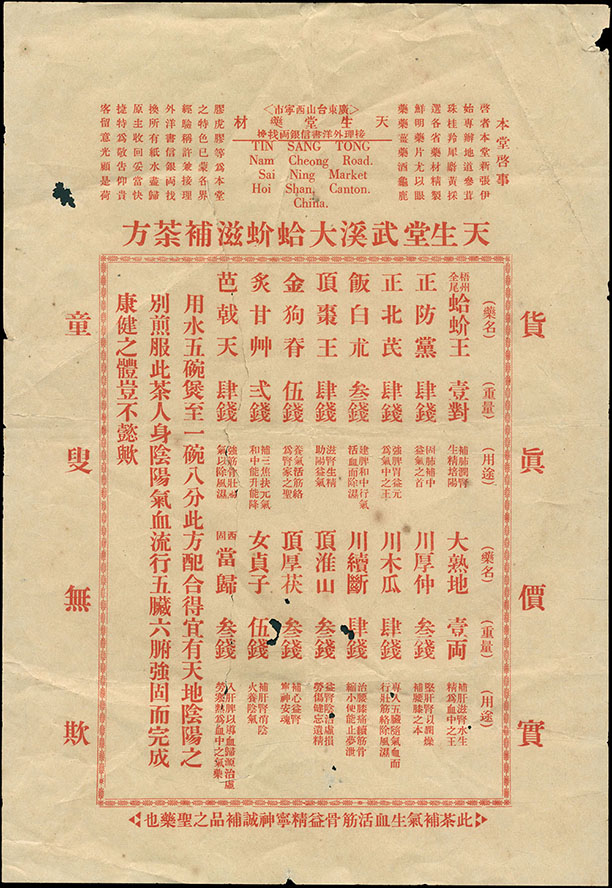 本堂啓事
啓者本堂新張伊
始專辦地道參茸
珠桂羚犀麝黃採
選各省藥材精製
鮮明藥片尤以眼
藥藥薑藥酒龜鹿
膠虎膠等為本堂
之特色已蒙各界
經驗稱許兼接理
外洋書信銀両找
換所有紙水壺歸
原主收回妥當快
捷特為敬告仰貴
客留意光顧是荷
廣東台山西寧市
天生堂藥材
接理外洋書信銀両找換
TIN SANG TONG
Nam Cheong Road.
Sai Ning Market
Hoi Shan, Canton.
China.
天生堂武溪大蛤蚧滋補茶方
貨真價實
(藥名) (重量) (用途) (藥名) (重量) (用途)
梧州全尾蛤蚧王 壹對 補肺潤腎生精培陽 大熟地 壹両 補肝滋腎水生精為血中之王
正防黨 肆錢 固肺補中益氣之首 川厚仲 叁錢 堅肝腎以潤燥補腰膝之本
正北芪 肆錢 強脾胃益元為氣中之王 川木瓜 肆錢 專入五臟隨氣血而行壯筋絡除風濕
飯白朮 叁錢 建脾和中行氣活血而除濕 川續斷 肆錢 治腰膝痛續筋骨縮小便能止夢洩
頂棗王 肆錢 滋腎生精助陽益氣 頂淮山 叁錢 益腎陰治虛損勞傷健忘遺精
金狗脊 伍錢 養氣活筋絡為腎家之聖 頂厚茯 叁錢 補心益腎寧神安魂
炙甘艸 弍錢 補三焦扶元氣和中能升能降 女貞子 伍錢 補肝腎消陰火養陰氣
芭戟天 肆錢 強筋骨壯陽氣以除風濕 西固當歸 叁錢 入肝脾以導血歸源治虛勞寒熱為血中之氣藥
用水五碗煲至一碗八分此方配合得宜有天地陰陽之
別煎服此茶人身陰陽氣血流行五臟六腑強固而完成
康健之體豈不懿歟
童叟無欺
此茶補氣生血活筋骨益精寧神誠補品之聖藥也